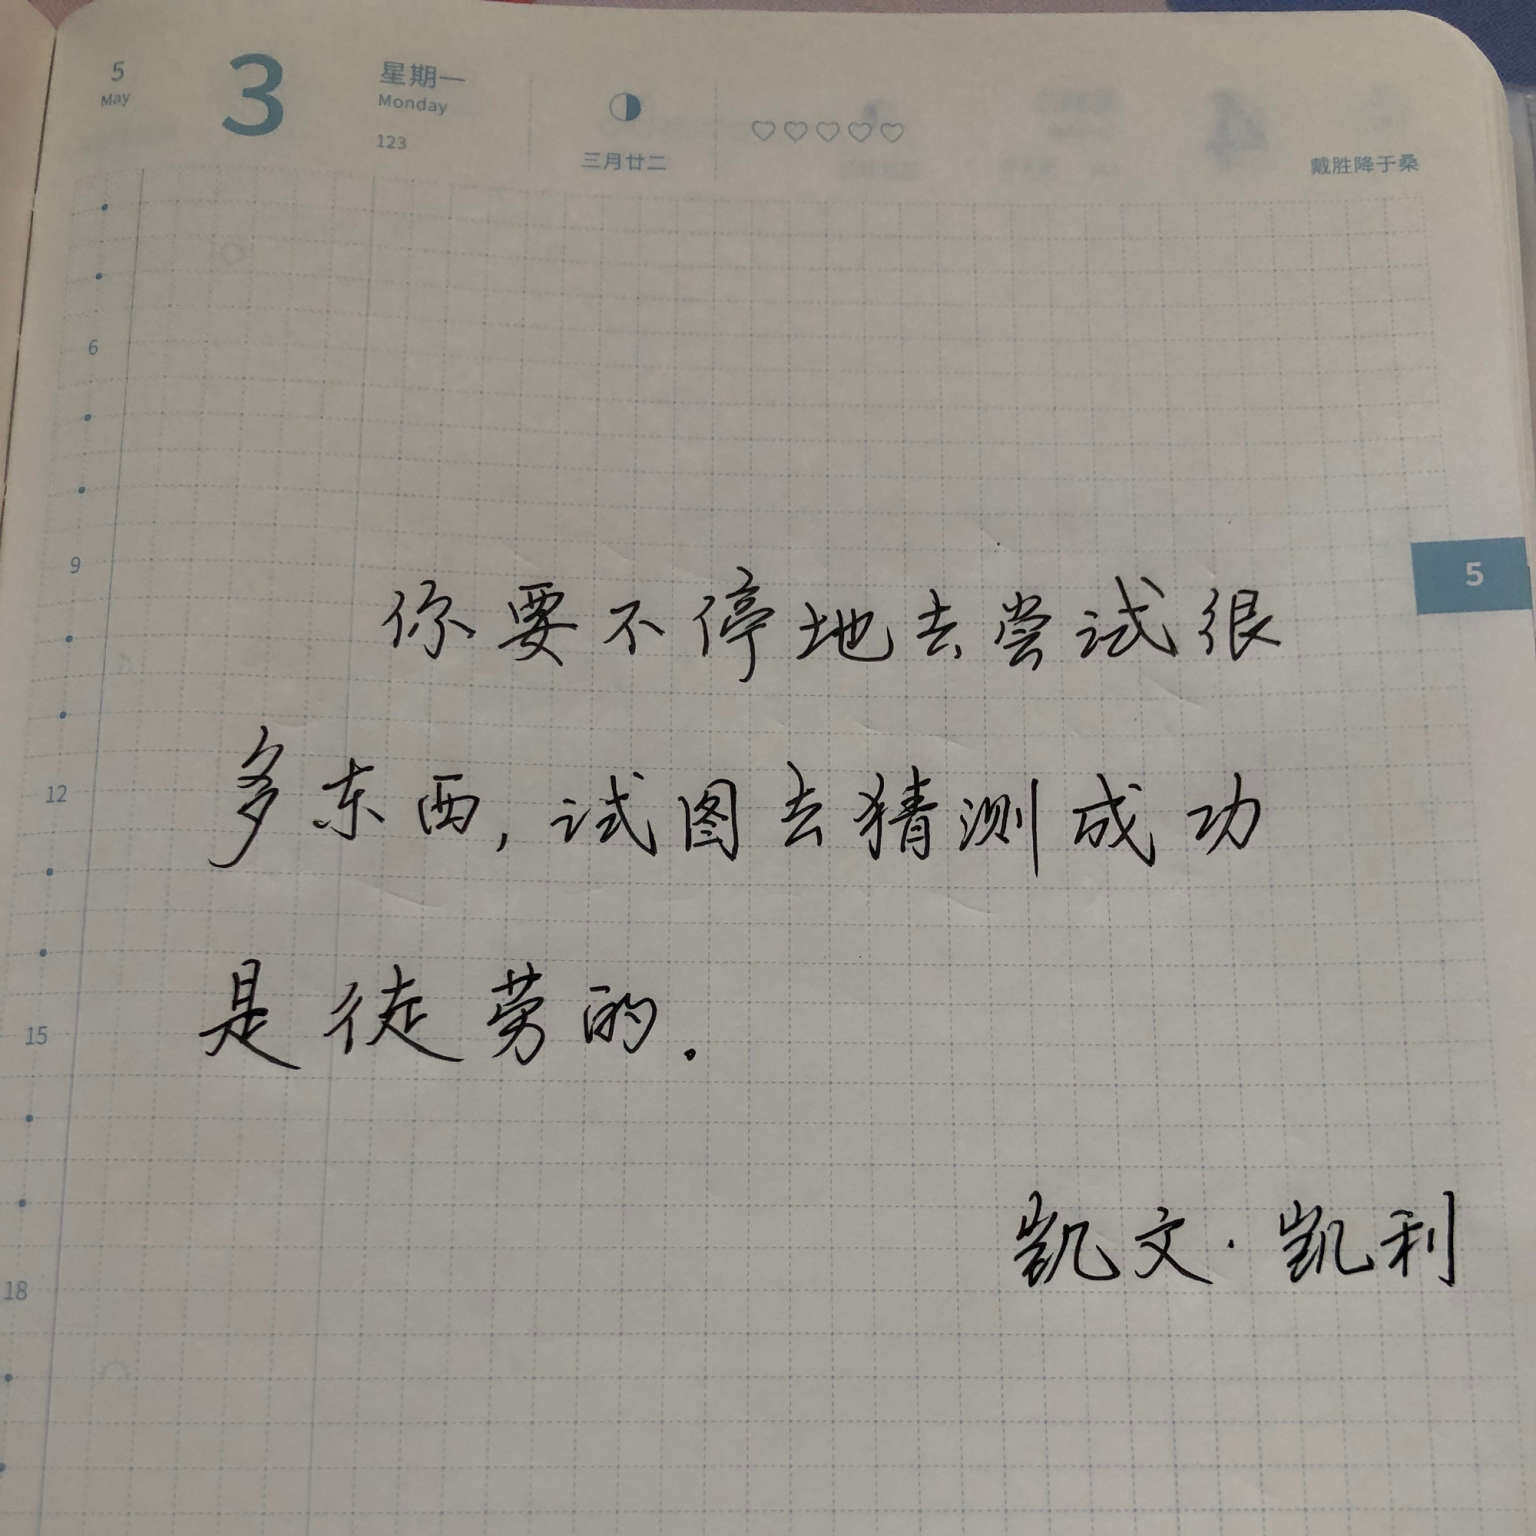 5
May
3
星期一
Monday
123
三月廿二
戴胜降于桑
6
9
5
你要不停地去尝试很
多东西,试图去猜测成功
12
是徒劳的.
15
凯文·凯利
18